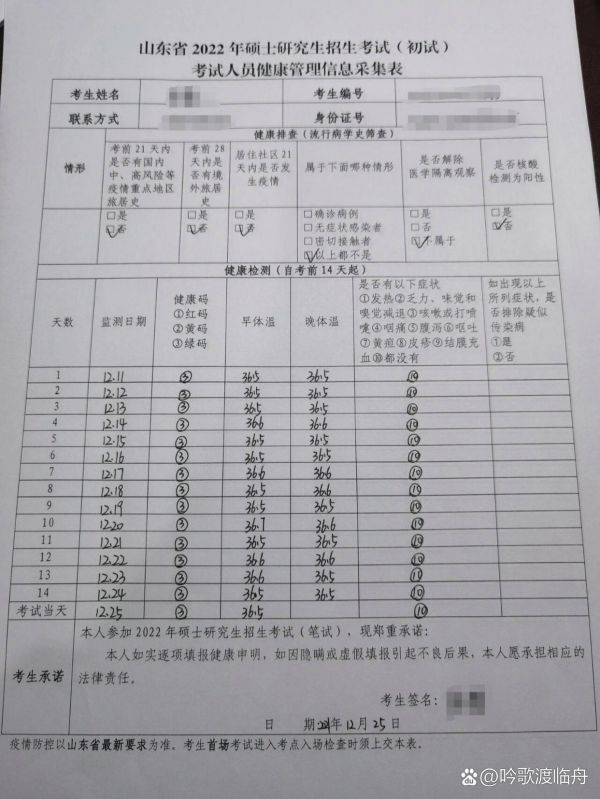 山东省2022年硕士研究生招生考试（初试）
考试人员健康管理信息采集表
考生姓名 考生编号
联系方式 身份证号
健康排查（流行病学史筛查）
情形
考前21天内
是否有国内
中、高风险等
疫情重点地区
旅居史
考前28
天内是
否有境
外旅居
史
居住社区21
天内是否发
生疫情
属于下面哪种情形
是否解除
医学隔离观察
是否核酸
检测为阳性
□是
□否
□是
□否
□是
□否
□确诊病例
□无症状感染者
□密切接触者
□以上都不是
□是
□否
□不属于
□是
□否
健康检测（自考前14天起）
天数
监测日期
健康码
①红码
②黄码
③绿码
早体温
晚体温
是否有以下症状
①发热②乏力、味觉和
嗅觉减退③咳嗽或打喷
嚏④咽痛⑤腹泻⑥呕吐
⑦黄疸⑧皮疹⑨结膜充
血⑩都没有
如出现以上
所列症状，是
否排除疑似
传染病
①是
②否
1 12.11 ③ 36.5 36.5 ⑩
2 12.12 ③ 36.5 36.5 ⑩
3 12.13 ③ 36.5 36.5 ⑩
4 12.14 ③ 36.6 36.6 ⑩
5 12.15 ③ 36.5 36.5 ⑩
6 12.16 ③ 36.5 36.5 ⑩
7 12.17 ③ 36.6 36.6 ⑩
8 12.18 ③ 36.5 36.6 ⑩
9 12.19 ③ 36.5 36.5 ⑩
10 12.20 ③ 36.7 36.6 ⑩
11 12.21 ③ 36.5 36.5 ⑩
12 12.22 ③ 36.6 36.6 ⑩
13 12.23 ③ 36.6 36.5 ⑩
14 12.24 ③ 36.5 36.5 ⑩
考试当天 12.25 ③ 36.5 ⑩
考生承诺
本人参加2022年硕士研究生招生考试（笔试），现郑重承诺：
本人如实逐项填报健康申明，如因隐瞒或虚假填报引起不良后果，本人愿承担相应的
法律责任。
考生签名：
日 期 年12月25日
疫情防控以山东省最新要求为准。考生首场考试进入考点入场检查时须上交本表。
@吟歌渡临舟